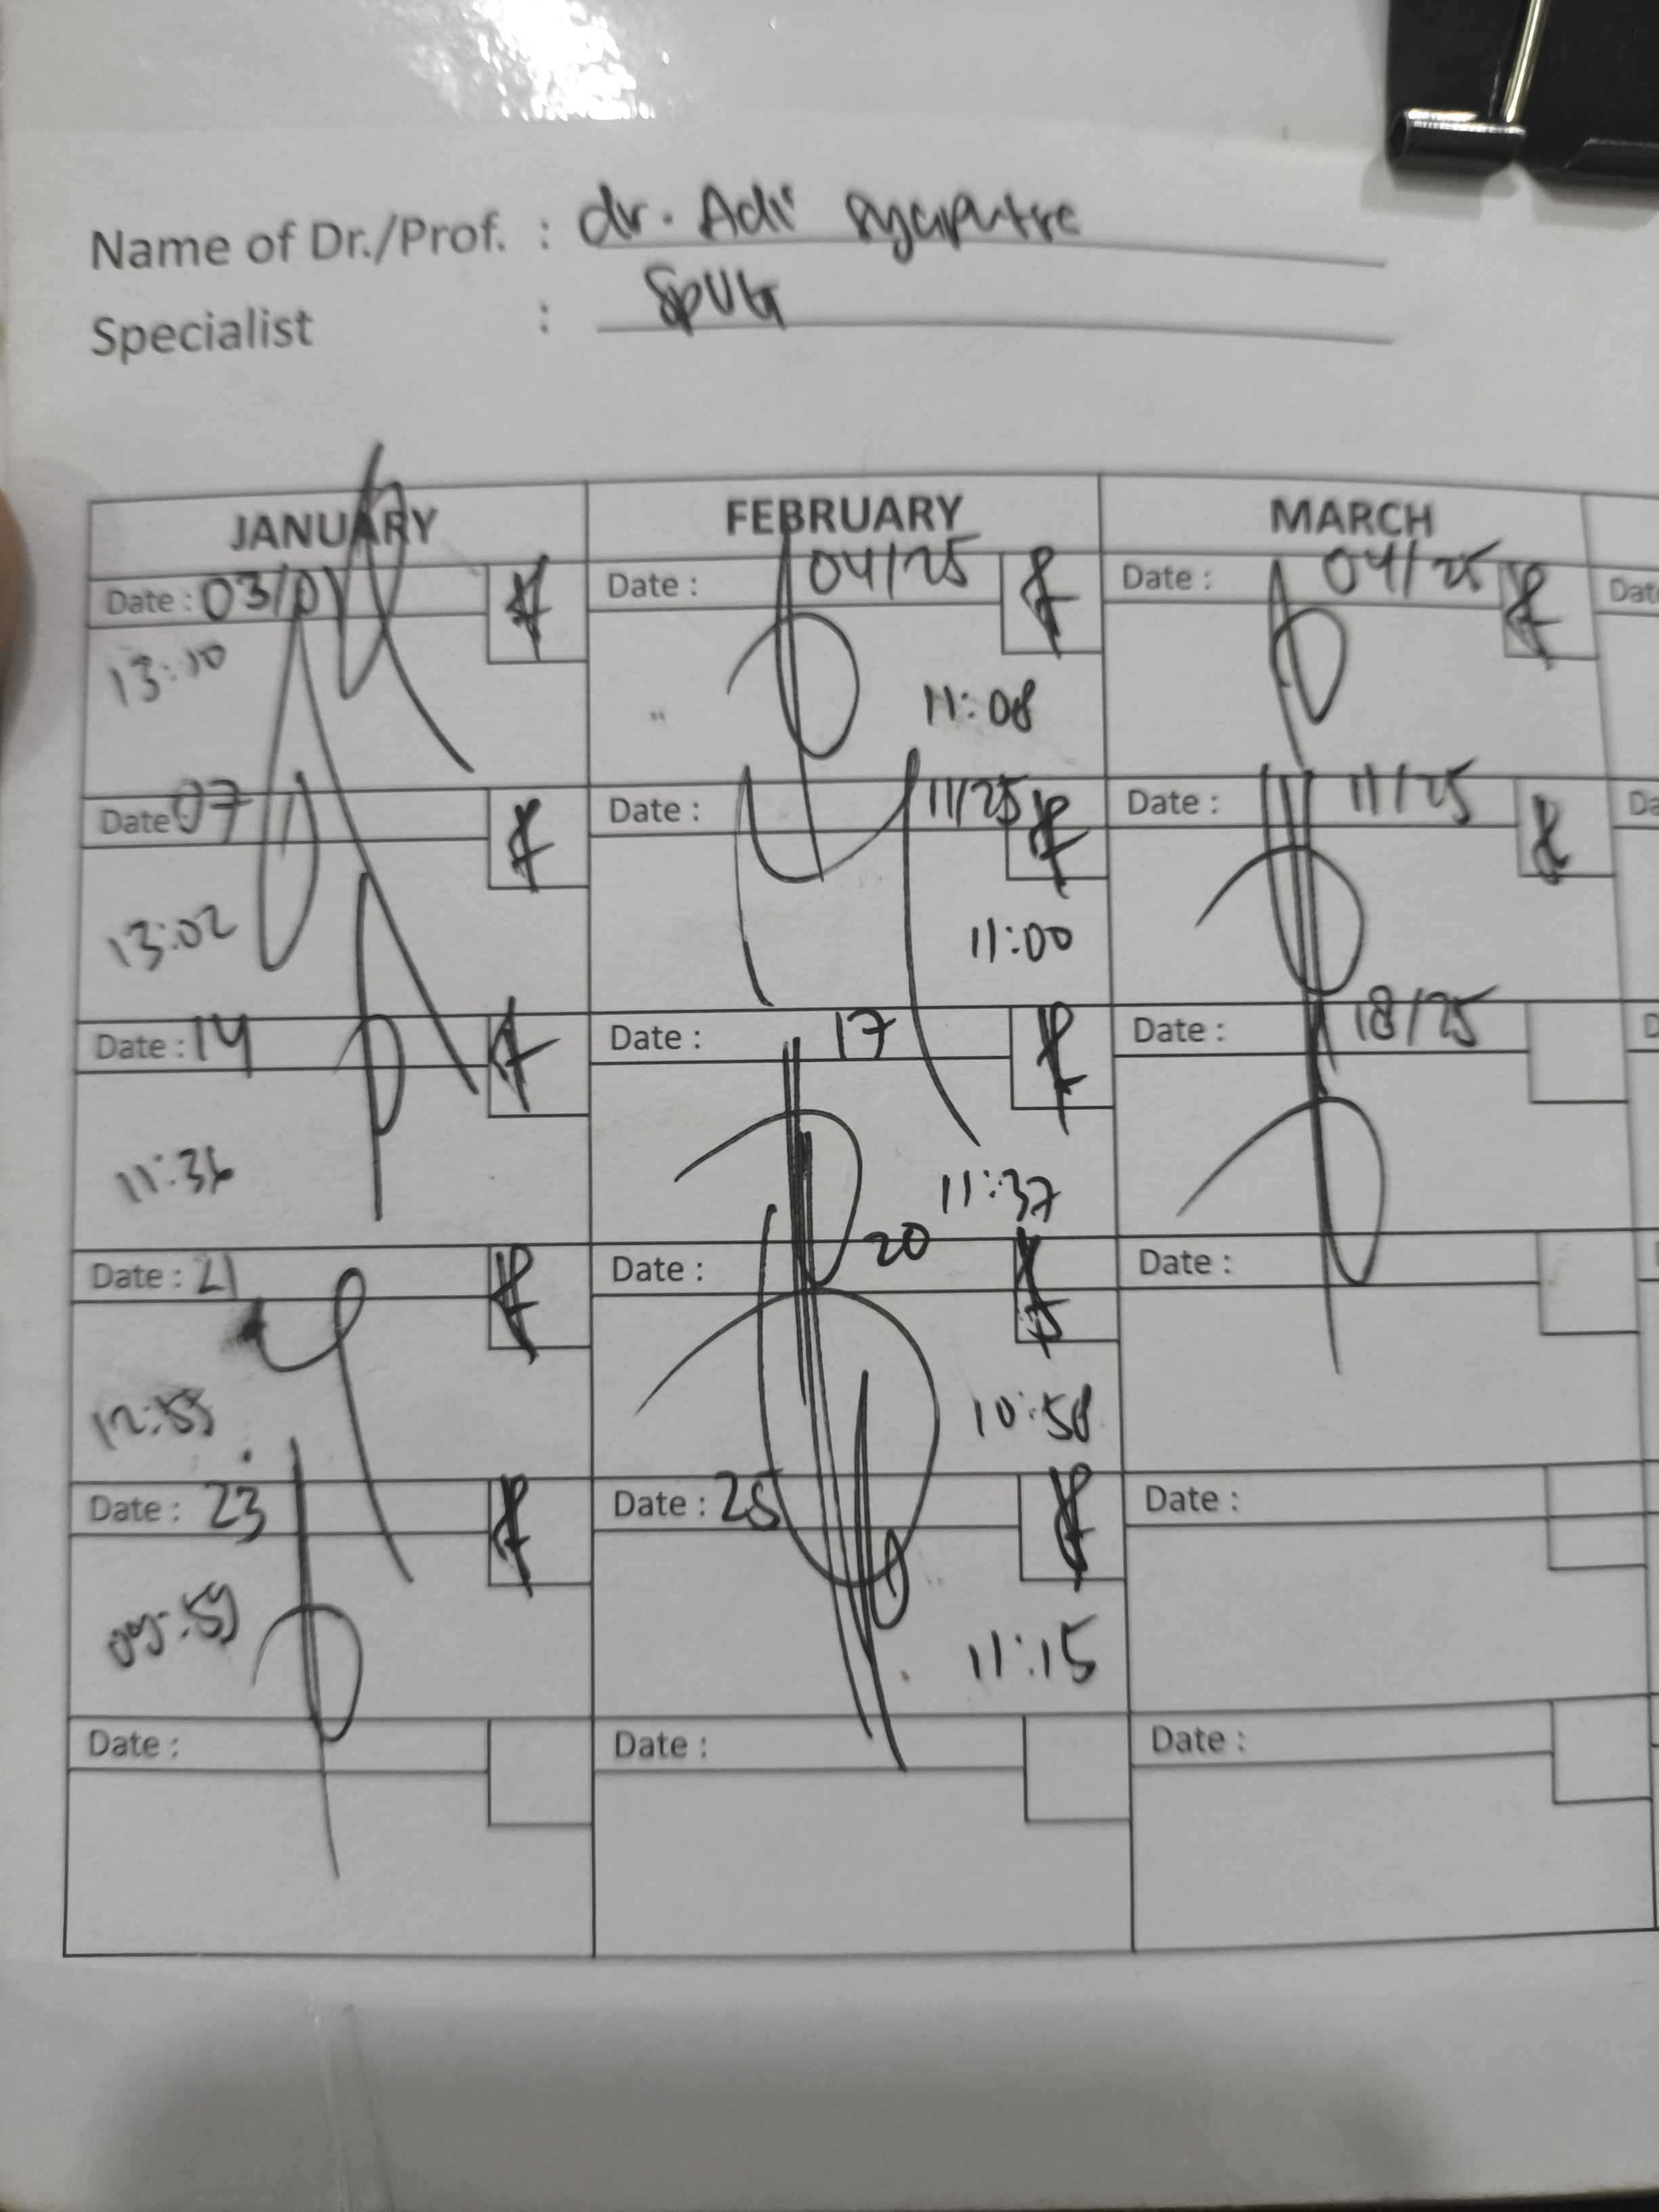 Name of Dr./Prof. : dr. Adi
Specialist :
JANUARY FEBRUARY MARCH
Date : 03/01 Date : 04/25 Date : 04/25 Date
13:10 11:08
Date : 07 Date : 11/25 Date : 11/25 Da
13:02 11:00
Date : 14 Date : 17 Date : 18/25 D
11:36 11:37
Date : 21 Date : 20 Date :
12:55 10:58
Date : 23 Date : 25 Date :
09:59 11:15
Date : Date : Date :